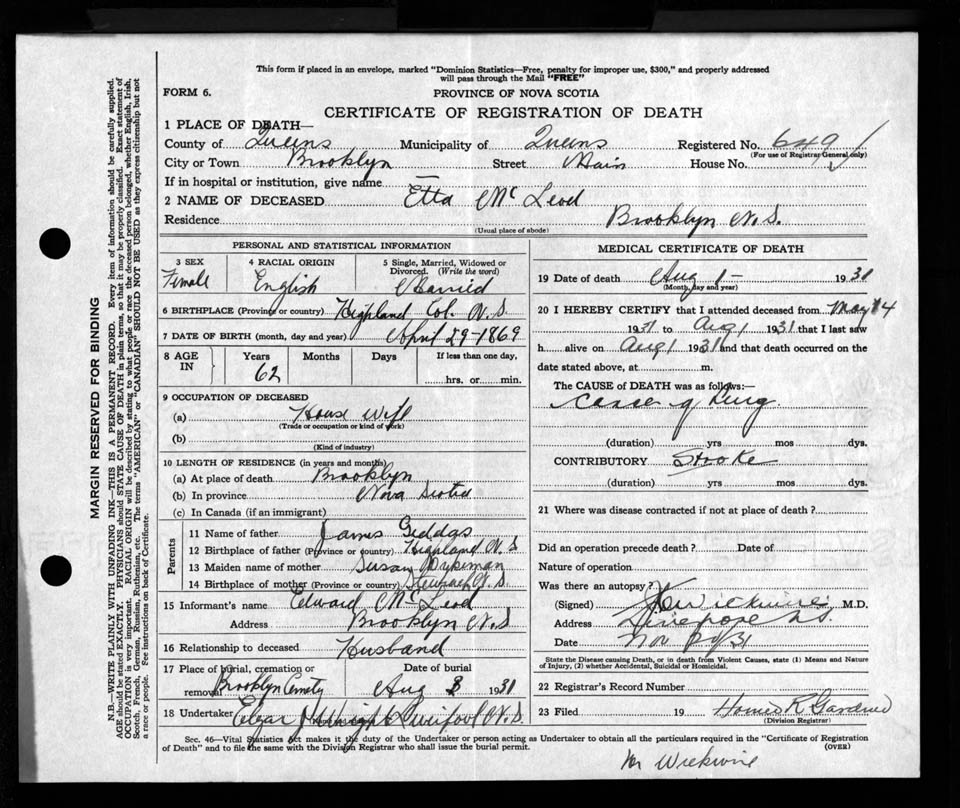 This form if placed in an envelope, marked "Dominion Statistics—Free, penalty for improper use, $300," and properly addressed
will pass through the Mail "FREE"
FORM 6.
PROVINCE OF NOVA SCOTIA
CERTIFICATE OF REGISTRATION OF DEATH
1 PLACE OF DEATH—
County of Queens Municipality of Queens Registered No. 649
(For use of Registrar General only)
City or Town Brooklyn Street Main House No.
If in hospital or institution, give name —
2 NAME OF DECEASED Etta McLeod
Residence Brooklyn N.S.
(Usual place of abode)
PERSONAL AND STATISTICAL INFORMATION
3 SEX Female
4 RACIAL ORIGIN English
5 Single, Married, Widowed or Divorced. (Write the word) Married
6 BIRTHPLACE (Province or country) Highland Col. N.S.
7 DATE OF BIRTH (month, day and year) April 29-1869
8 AGE IN Years 62 Months Days If less than one day, hrs. or min.
9 OCCUPATION OF DECEASED
(a) House Wife
(Trade or occupation or kind of work)
(b)
(Kind of industry)
10 LENGTH OF RESIDENCE (in years and months)
(a) At place of death Brooklyn
(b) In province Nova Scotia
(c) In Canada (if an immigrant)
Parents
11 Name of father James Geddas
12 Birthplace of father (Province or country) Highland N.S
13 Maiden name of mother Susan
14 Birthplace of mother (Province or country) N.S.
15 Informant's name Edward McLeod
Address Brooklyn N.S
16 Relationship to deceased Husband
17 Place of burial, cremation or removal Brooklyn Cemety
Date of burial Aug 3 1931
18 Undertaker Liverpool N.S.
MEDICAL CERTIFICATE OF DEATH
19 Date of death Aug 1- 1931
(Month, day and year)
20 I HEREBY CERTIFY that I attended deceased from May 14
1931 to Aug 1 1931 that I last saw
h alive on Aug 1 1931 and that death occurred on
date stated above, at m.
The CAUSE of DEATH was as follows:—
Cancer of Lung
(duration) yrs mos dys.
CONTRIBUTORY Stroke
(duration) yrs mos dys.
21 Where was disease contracted if not at place of death?
Did an operation precede death? Date of
Nature of operation
Was there an autopsy?
(Signed) Wickwire M.D.
Address Liverpool N.S.
Date Nov 31
State the Disease causing Death, or in death from Violent Causes, state (1) Means and Nature
of Injury, (2) whether Accidental, Suicidal or Homicidal.
22 Registrar's Record Number
23 Filed 19 Homer R Gardner
(Division Registrar)
Sec. 46—Vital Statistics Act makes it the duty of the Undertaker or person acting as Undertaker to obtain all the particulars required in the "Certificate of Registration
of Death" and to file the same with the Division Registrar who shall issue the burial permit.
(OVER)
Dr Wickwire
MARGIN RESERVED FOR BINDING
N.B.—WRITE PLAINLY WITH UNFADING INK—THIS IS A PERMANENT RECORD. Every item of information should be carefully supplied.
AGE should be stated EXACTLY. PHYSICIANS should STATE CAUSE OF DEATH in plain terms, so that it may be properly classified. Exact statement of
OCCUPATION is very important. RACIAL ORIGIN will be described by stating to what people or race the deceased person belonged, whether English, Irish,
Scotch, French, German, Russian, Ruthenian, etc. The terms "AMERICAN" or "CANADIAN" SHOULD NOT BE USED as they express citizenship but not
a race or people. See instructions on back of Certificate.